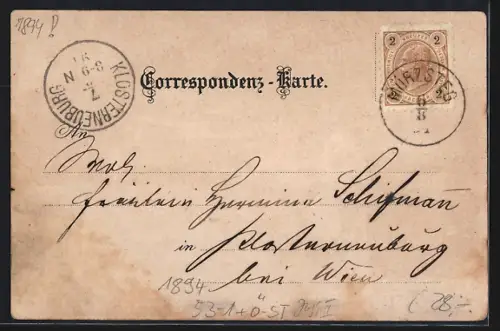 1894
KLOSTERNEUBURG
Correspondenz-Karte.
2 2
MÜRZSTEG
An
Wol.
Fräulein Hermine Schifmann
in Klosterneuburg
bei Wien
1894
28,-